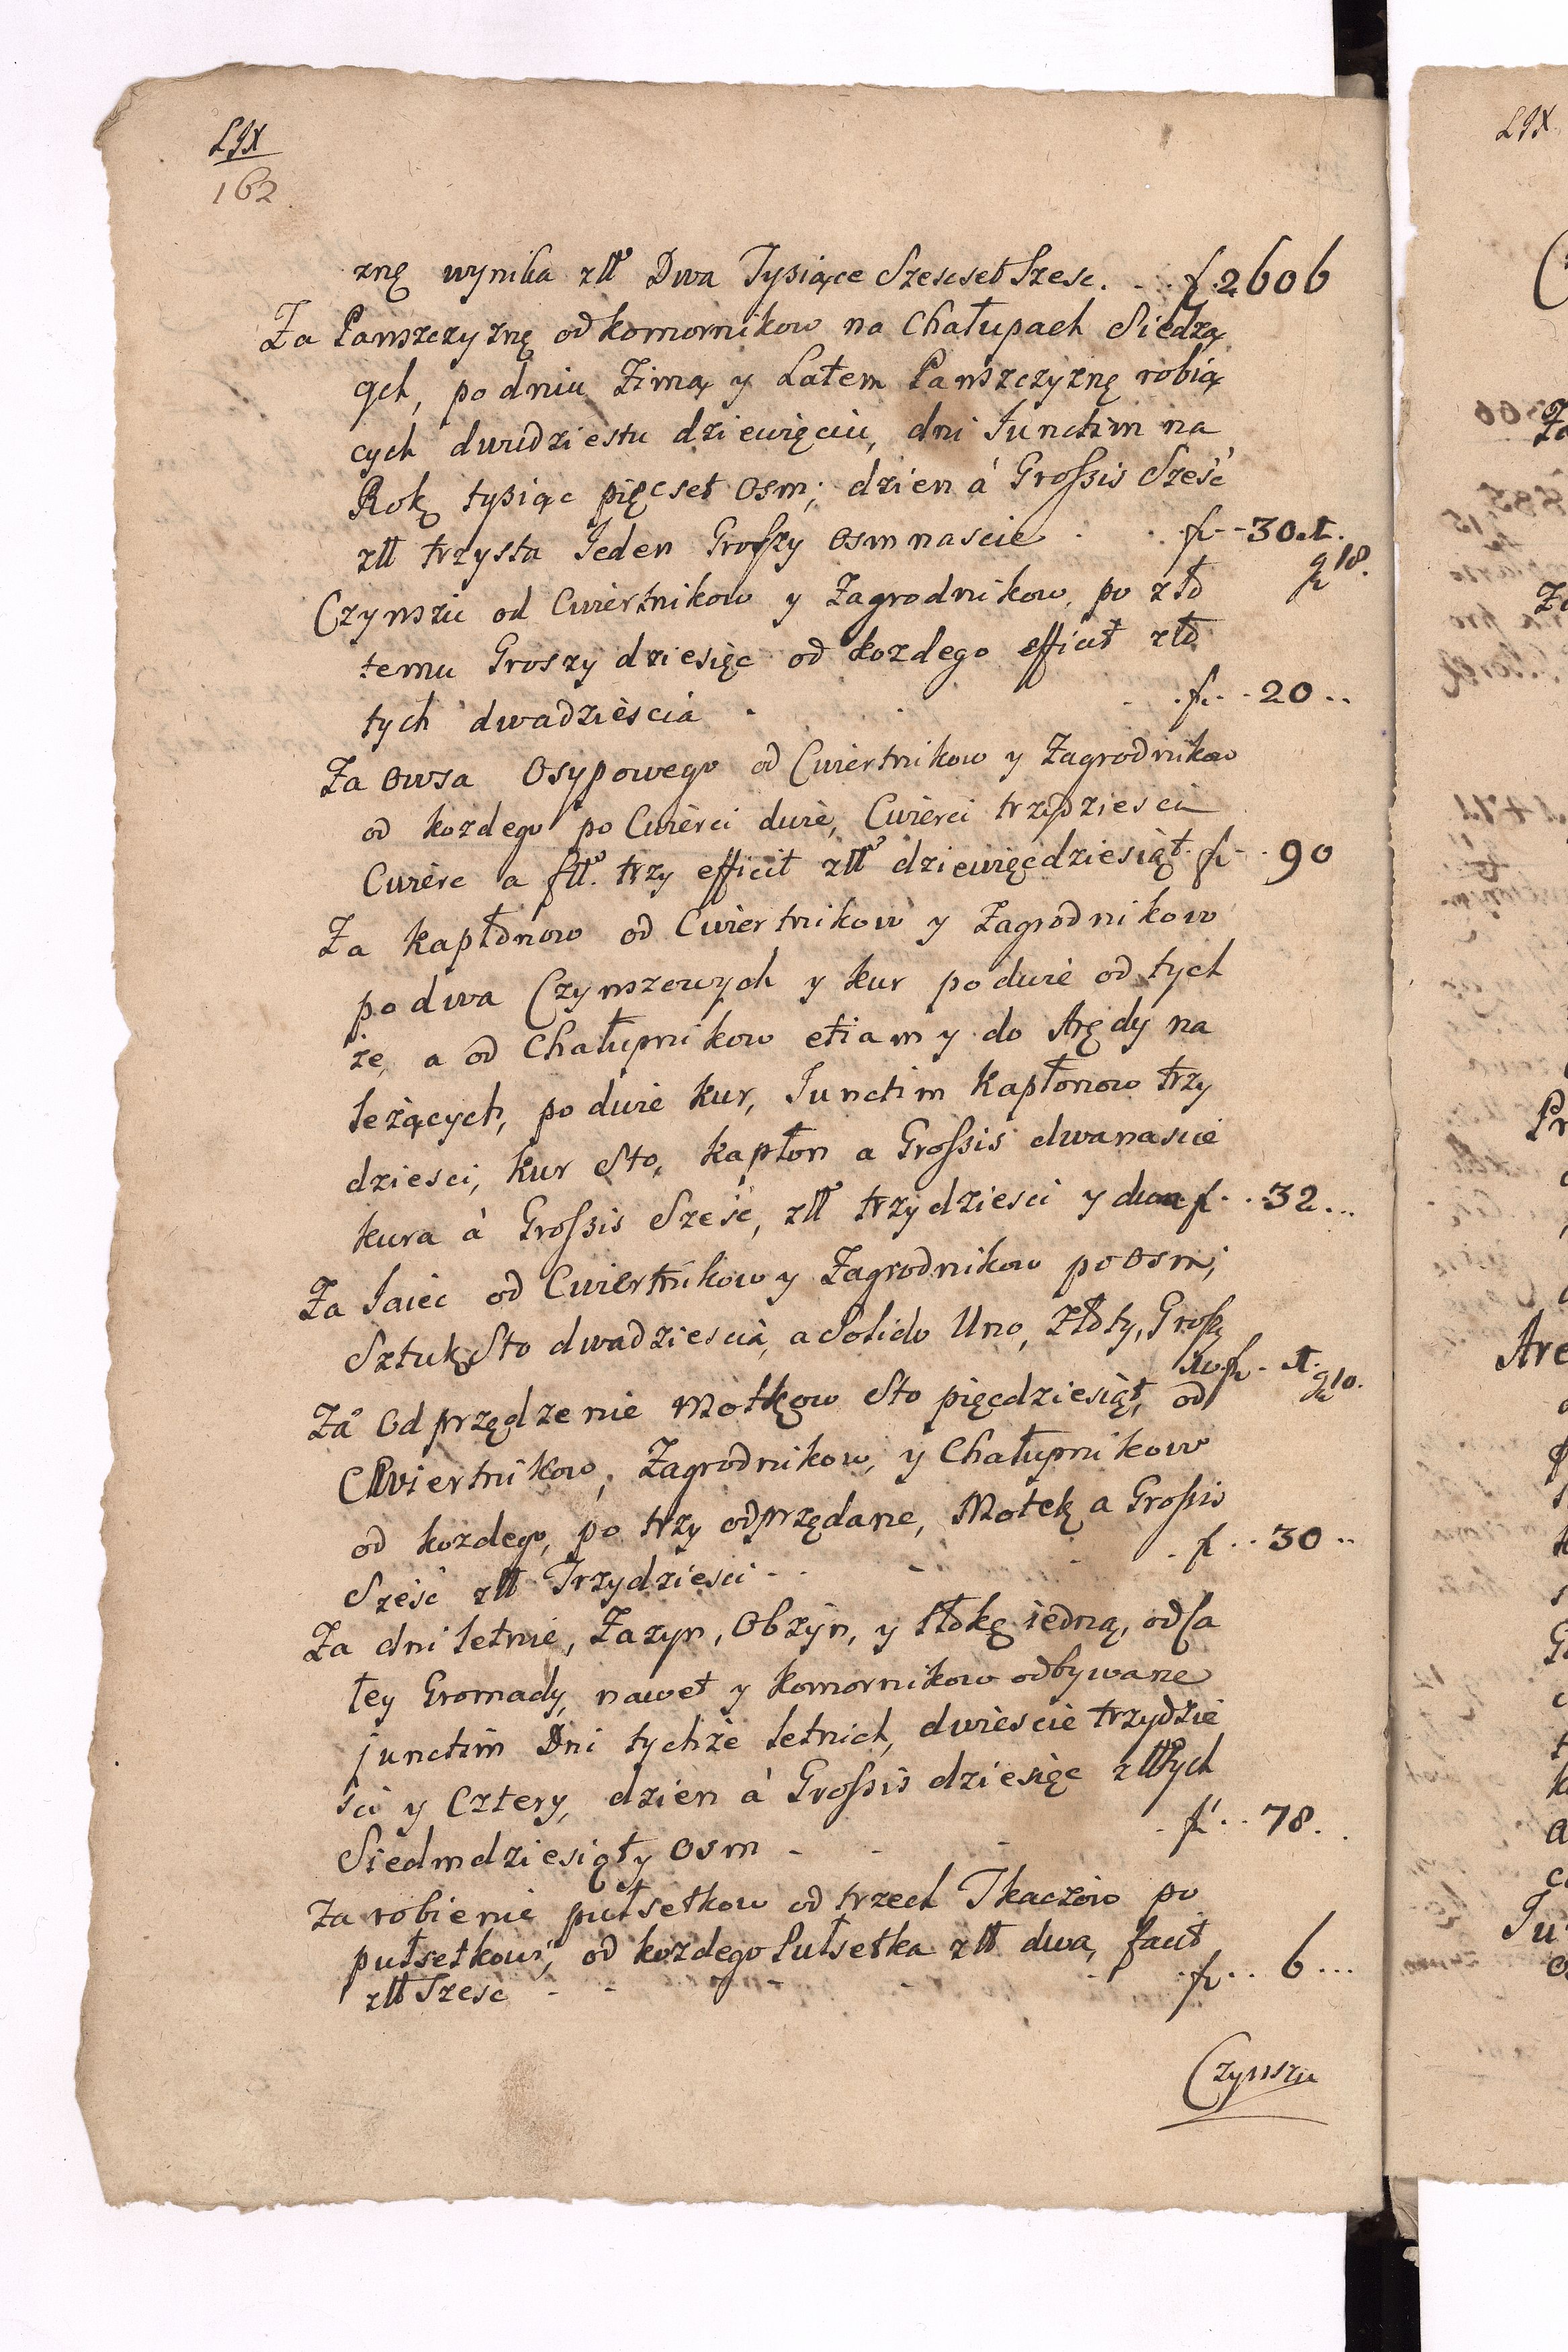 LIX
162
znę wynika złł Dwa Tysiące Szescset Szesc. . . f. 2606
Za Panszczyznę od komornikow na Chałupach Siedzą
gch, po dniu Zimą y Latem Panszczyznę robią
cych dwudziestu dziewięciu, dni Junctim na
Rok tysiąc pięcset Osm; dzien á Grossis Sześć
złł trzysta Jeden Groszy Osmnascie . . . f. - 301.
g 18.
Czynszu od Cwiertnikow y Zagrodnikow, po zło
temu Groszy dziesięc od kozdego efficit zło
tych dwadziescia . . . f. . 20 . .
Za Owsa Osypowego od Cwiertnikow y Zagrodnikow
od kozdego po Cwierci dwie, Cwierci trzydziesci
Cwierc a fłł. trzy efficit złł dziewięcdziesiąt. f. . 90
Za kapłonow od Cwiertnikow y Zagrodnikow
po dwa Czynszowych y kur po dwie od tych
że, a od Chałupnikow etiam y do Arędy na
leżących, po dwie kur, Junctim Kapłonow trzy
dziesci, kur Sto, kapłon a Grossis dwanascie
kura á Grossis Sześć, złł trzydziesci y dwa f. . 32...
Za Jaiec od Cwiertnikow y Zagrodnikow po osm;
Sztuk Sto dwadziescia, a Solido Uno, Złoty, Groszy
f. - 1.
g 10.
Za Odprzędzenie Motkow Sto pięcdziesiąt, od
Cwiertnikow, Zagrodnikow, y Chałupnikow
od kozdego, po trzy odprzędane, Motek a Grossis
Sześć złł Trzydziesci - . . f. . 30 . .
Za dni letnie, Zazyn, Obzyn, y tłokę iedną, od Ca
łey Gromady, nawet y komornikow odbywane
junctim Dni tychże letnich, dwiescie trzydzie
ści y Cztery, dzien á Grossis dziesięc złłtych
Siedmdziesiąty Osm - - - . f. . 78. .
Za robienie pułsetkow od trzech Tkaczow po
pułsetkowi, od kozdego Pułsetka złł dwa, facit
złł Szesc - - - - f. . . 6 . . .
Czynszu
LIX